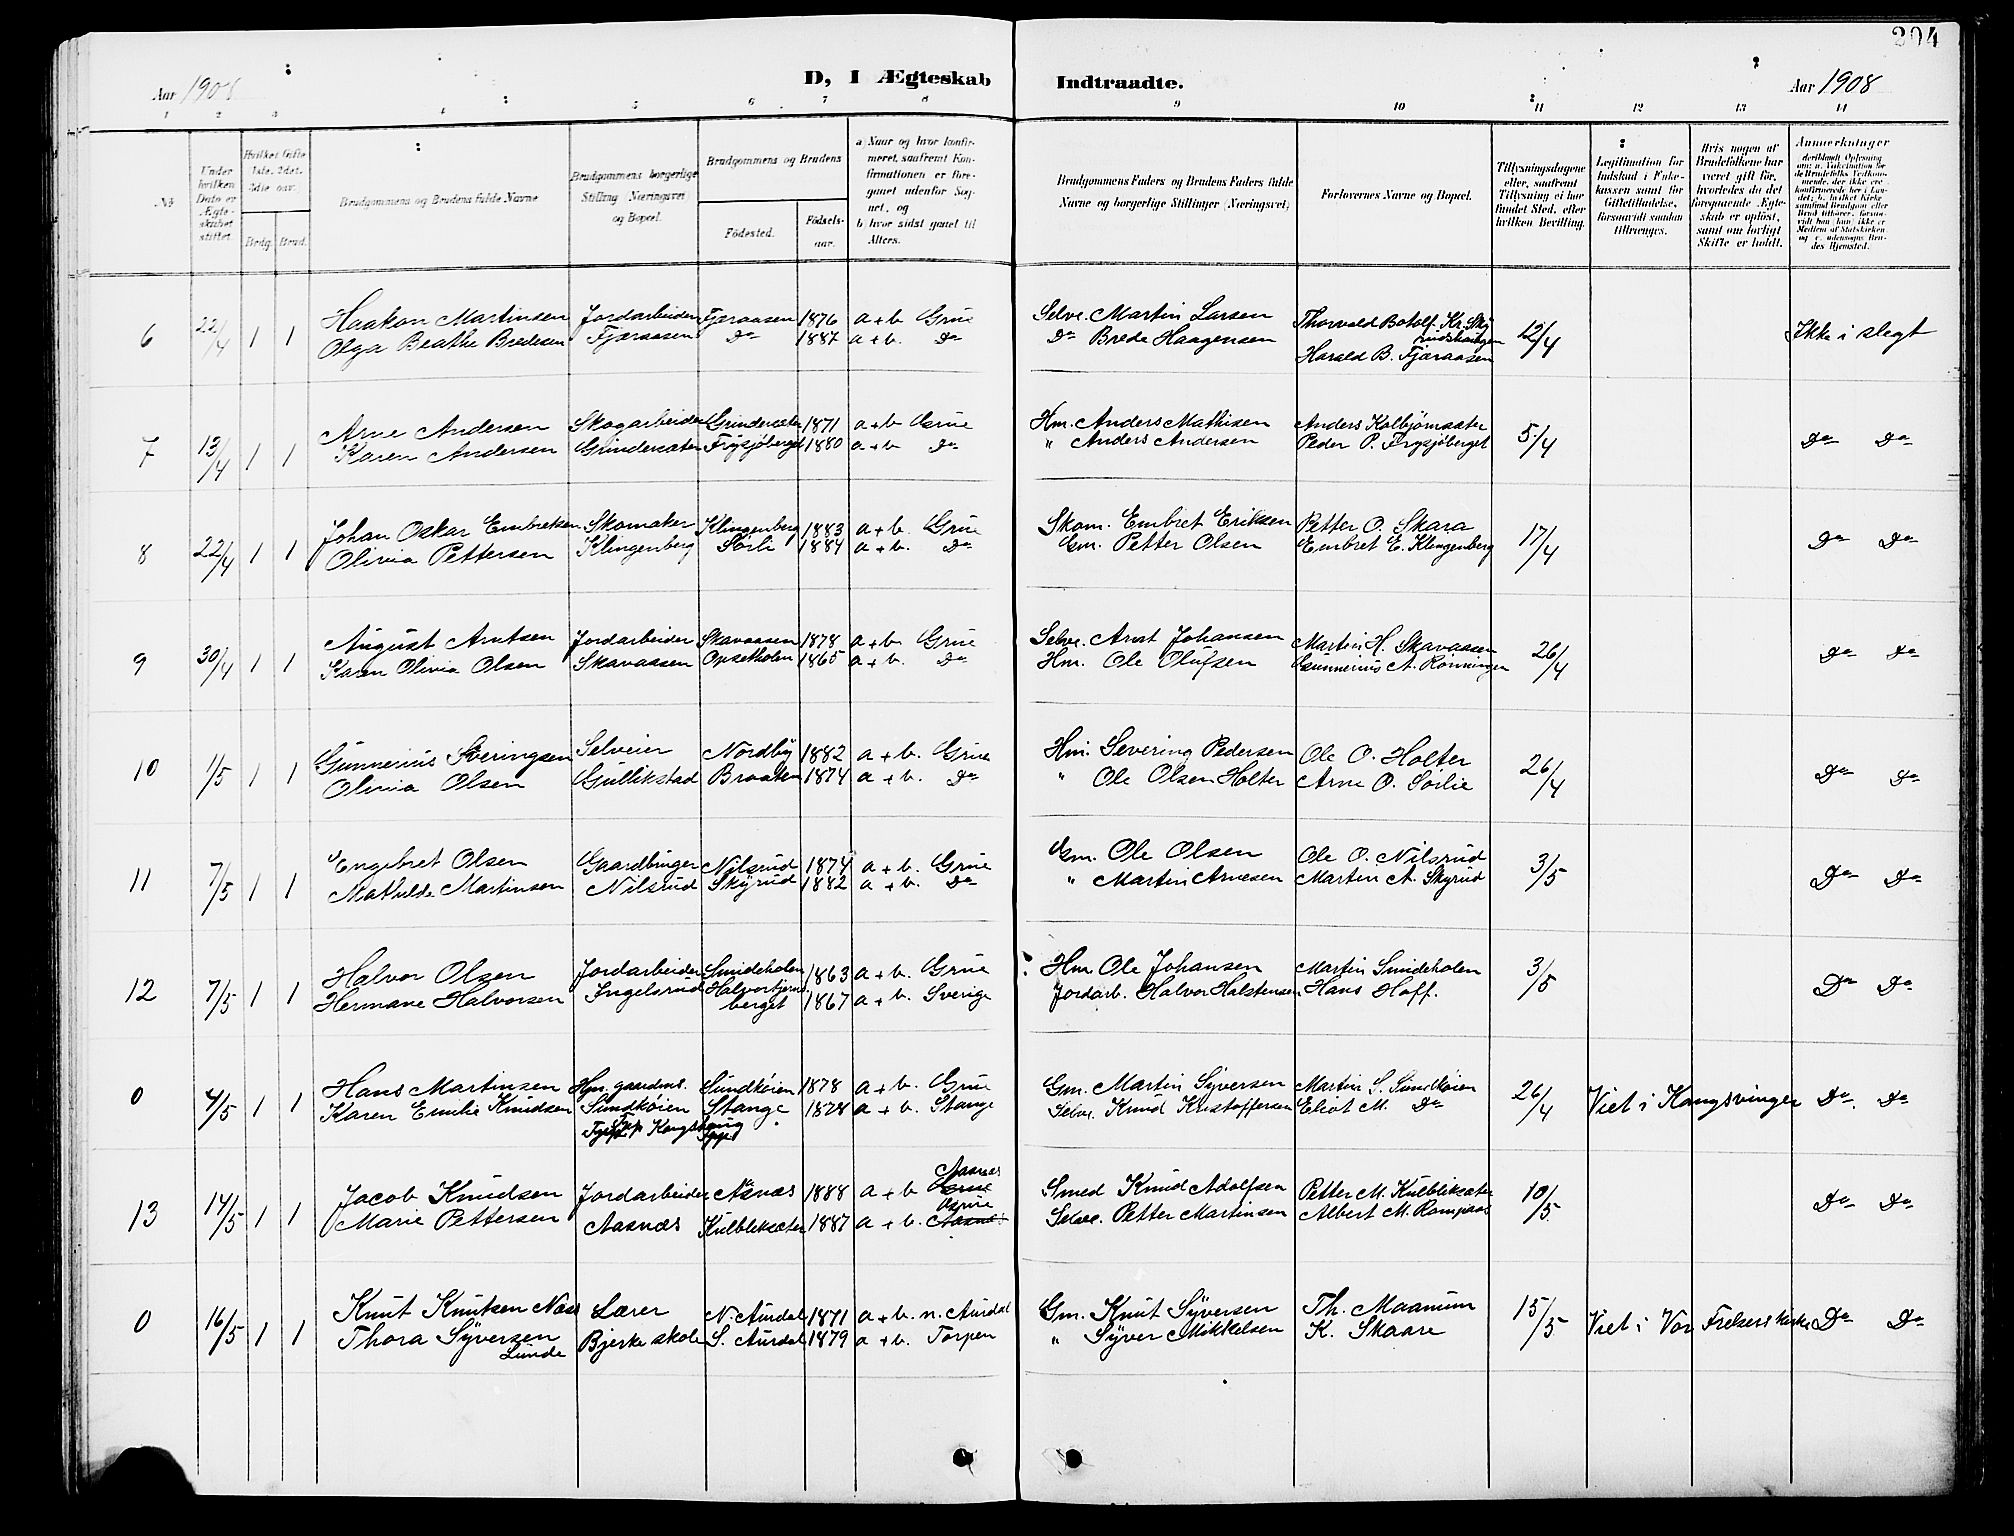 204
Aar 1908
D, I Ægteskab Indtraadte.
Aar 1908
1 2 3 4 5 6 7 8 9 10 11 12 13 14
No
Under hvilken Dato er Ægteskabet stiftet.
Hvilket Gifte 1ste, 2det, 3die osv.
Brdg. Brud.
Brudgommens og Brudens fulde Navne
Brudgommens borgerlige Stilling (Næringsvei) og Bopæl.
Brudgommens og Brudens
Födested.
Födselsaar.
a) Naar og hvor konfirmeret, saafremt Konfirmationen er foregaaet udenfor Sognet, og
b) hvor sidst gaaet til Alters.
Brudgommens Faders og Brudens Faders fulde Navne og borgerlige Stillinger (Næringsvei)
Forlovernes Navne og Bopæl.
Tillysningsdagene eller, saafremt Tillysning ei har fundet Sted, efter hvilken Bevilling.
Legitimation for Indskud i Enkekassen samt for Giftetilladelse, forsaavidt saadan tiltrænges.
Hvis nogen af Brudefolkene har været gift før, hvorledes da det foregaaende Ægteskab er opløst, samt om lovligt Skifte er holdt.
Anmærkninger
6 22/4 1 1 Haakon Martinsen Jordarbeider Fjæraasen 1876 a + b. Grue Selve. Martin Larsen Thorvald Botolf Kr. Skyrudshaugen 12/4 Ikke i slegt
Olga Beathe Bredesen Fjæraasen Do 1887 a + b. Do Do Brede Haagensen Harald B. Fjæraasen
7 13/4 1 1 Arne Andersen Skogarbeider Grindersæter 1871 a + b Grue Hm. Anders Mathisen Anders Kolbjørnsæter 5/4 Do Do
Karen Andersen Grindersæter Frysjøberget 1880 a + b Do " Anders Andersen Peder P. Frysjøberget
8 22/4 1 1 Johan Oskar Embretsen Skomaker Klingenberg 1883 a + b. Grue Skom. Embret Eriksen Petter O. Skara 17/4 Do Do
Olivia Pettersen Klingenberg Sørli 1884 a + b. Do Gm. Petter Olsen Embret E. Klingenberg
9 30/4 1 1 August Arntsen Jordarbeider Skavaasen 1878 a + b. Grue Selve. Arnt Johansen Martin H. Skavaasen 26/4 Do Do
Karen Olivia Olsen Skavaasen Opsetholen 1865 a + b. Do Hm. Ole Olufsen Gunnerius A. Rønningen
10 1/5 1 1 Gunnerius Sveringsen Selveier Nordby 1882 a + b. Grue Hm. Severing Pedersen Ole O. Holter 26/4 Do Do
Olivia Olsen Gullikstad Braaten 1874 a + b. Do " Ole Olsen Holter Arne O. Sørlie
11 7/5 1 1 Engebret Olsen Gaardbruger Nilsrud 1874 a + b. Grue Gm. Ole Olsen Ole O. Nilsrud 3/5 Do Do
Mathilde Martinsen Nilsrud Skyrud 1882 a + b. Do " Martin Arnesen Martin A. Skyrud
12 7/5 1 1 Halvor Olsen Jordarbeider Smideholen 1863 a + b. Grue Hm Ole Johansen Martin Smideholen 3/5 Do Do
Hermane Halvorsen Ingelsrud Halvortjernsberget 1867 a + b. Sverige Jordarb. Halvor Halstensen Hans Hoff.
0 4/5 1 1 Hans Martinsen Hjm. gaardms. Sundkøien 1878 a + b. Grue Gm. Martin Syversen Martin S. Sundkøien 26/4 Viet i Kongsvinger Do Do
Karen Emilie Knudsen Sundkøien Stange 1878 a + b. Stange Selve. Knud Kristoffersen Eliot M. Do
13 14/5 1 1 Jacob Knudsen Jordarbeider Aasnæs 1888 a + b Aasnæs Grue Smed Knud Adolfsen Petter M. Kulbliksæter 10/5 Do Do
Marie Pettersen Aasnæs Kulbliksæter 1887 a + b. Grue Aasnæs Selve. Petter Martinsen Albert M.
0 16/5 1 1 Knut Knutsen Næss Lærer N. Aurdal 1871 a + b. n. Aurdal Gm. Knut Syversen Th. Maanum 15/5 Viet i Vor Frelsers Kirke Do Do
Thora Syversen Lunde Bjerke skole S. Aurdal 1879 a + b. Torpen " Syver Mikkelsen K. Skaare